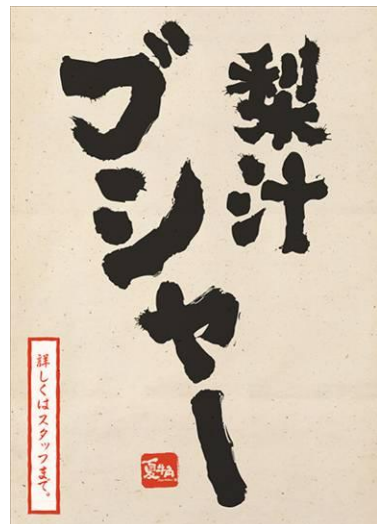 梨汁
ブシャー
詳しくはスタッフまで。
夏牛角